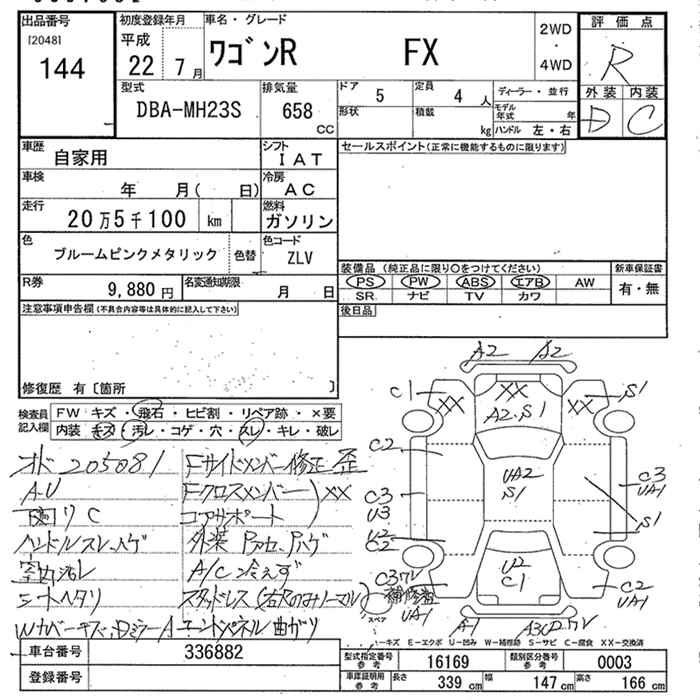 出品番号
[2048]
144
初度登録年月
平成
22 7 月
車名・グレード
ワゴンR FX
2WD
・
4WD
評 価 点
R
外装 内装
D C
型式
DBA-MH23S
排気量
658
cc
ドア
5
定員
4 人
形状
積載
kg
ディーラー・並行
モデル年式 年
ハンドル 左・右
車歴
自家用
シフト
IAT
車検
年 月( 日)
冷房
AC
走行
20万5千100 km
燃料
ガソリン
色
ブルームピンクメタリック
色替
色コード
ZLV
R券
9,880 円
名変通知期限
月 日
セールスポイント(正常に機能するものに限ります)
装備品 (純正品に限り○をつけてください)
新車保証書
PS PW ABS エアB AW
SR ナビ TV カワ
有・無
後日品
注意事項申告欄(不具合内容等は具体的に記入して下さい)
修復歴 有〔箇所 〕
検査員
記入欄
FW キズ・飛石・ヒビ割・リペア跡・×要
内装 キズ・汚レ・コゲ・穴・スレ・キレ・破レ
オド 205081
A・U
下回り C
ハンドルスレ、ハゲ
室内汚レ
シートヘタリ
Wカバーキズ、Dミラー A
Fサイドメンバー修正 歪
Fクロスメンバー
コアサポート
XX
外装
A/C 冷えず
スタッドレス(右Rのみノーマル)
エンドパネル曲ガリ
A2
A2
C1
XX
XX
A2・S1
XX
S1
C2
C3
U3
U2
C2
UA2
S1
C3
UA1
S1
U2
C1
C3
補修
UA1
C2
UA1
A1
スペア
キズ E-エクボ U-凹み W-補修跡 S-サビ C-腐食 XX-交換済
車台番号
336882
登録番号
型式指定番号
参考
16169
類別区分番号
参考
0003
車庫証明用
参考
長さ
339 cm
幅
147 cm
高さ
166 cm